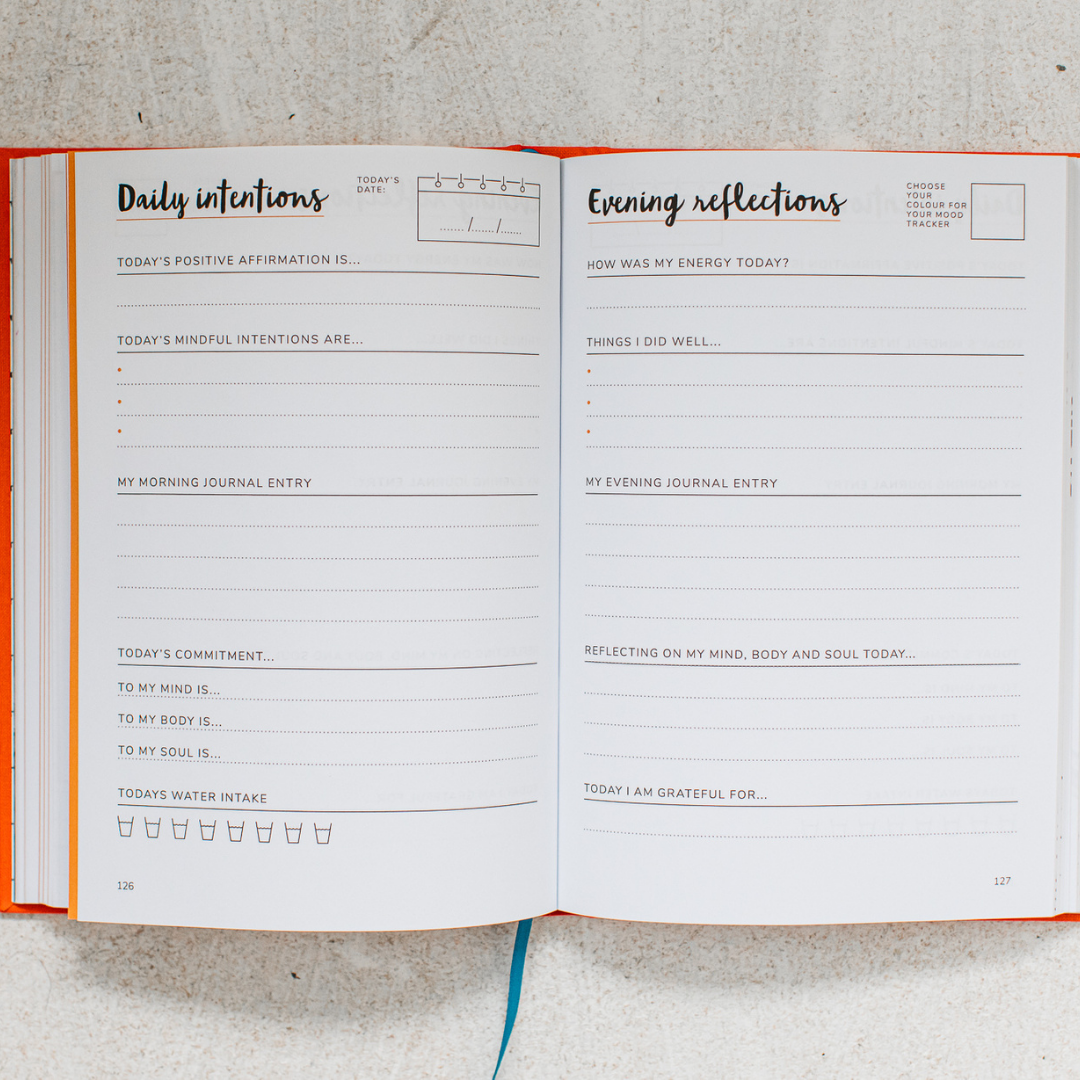 Daily intentions
TODAY'S
DATE:
......./......./.......
TODAY'S POSITIVE AFFIRMATION IS...
TODAY'S MINDFUL INTENTIONS ARE...
MY MORNING JOURNAL ENTRY
TODAY'S COMMITMENT...
TO MY MIND IS...
TO MY BODY IS...
TO MY SOUL IS...
TODAYS WATER INTAKE
126
Evening reflections
CHOOSE
YOUR
COLOUR FOR
YOUR MOOD
TRACKER
HOW WAS MY ENERGY TODAY?
THINGS I DID WELL...
MY EVENING JOURNAL ENTRY
REFLECTING ON MY MIND, BODY AND SOUL TODAY...
TODAY I AM GRATEFUL FOR...
127